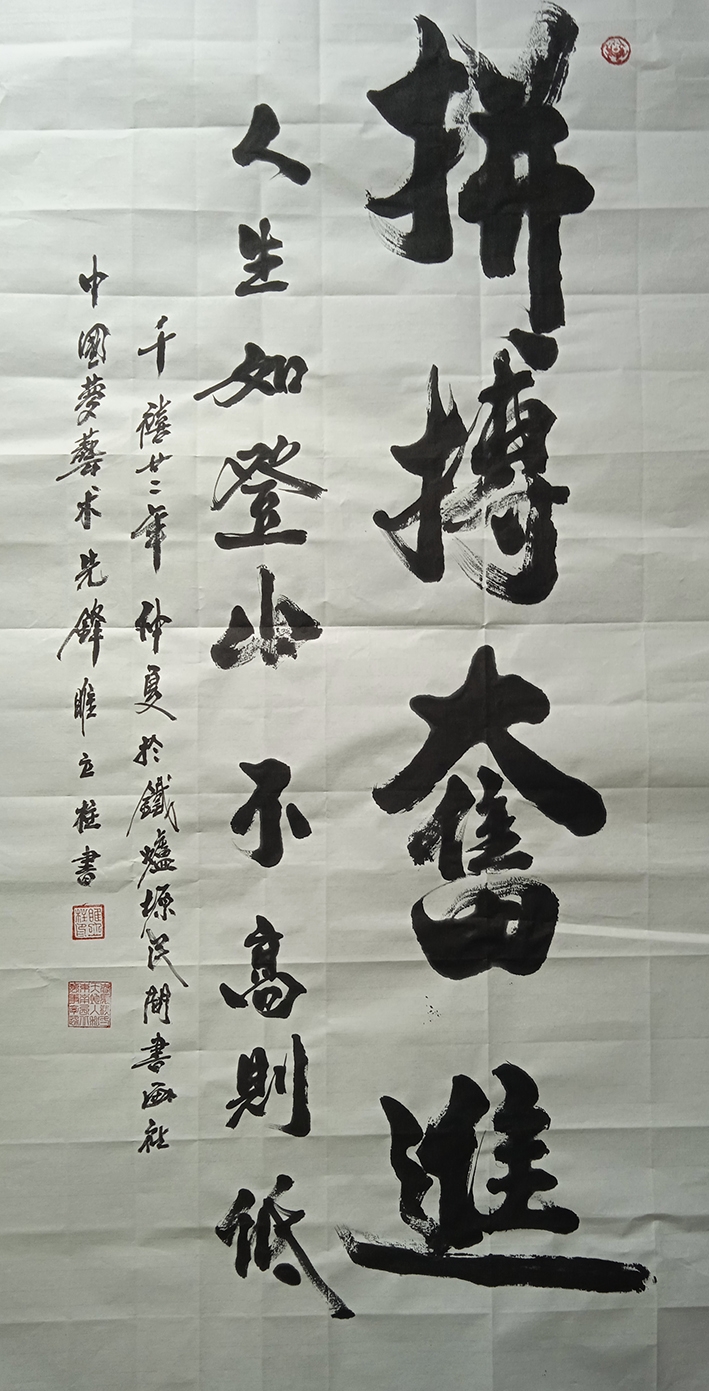 拼搏奮進
人生如登山不高則低
千禧廿二年仲夏於鐵爐塬民間書画社
中國夢藝术先鋒睢立柱書